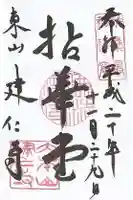 奉拝 平成二十年
十一月二十九日
拈華堂
東山 建仁寺